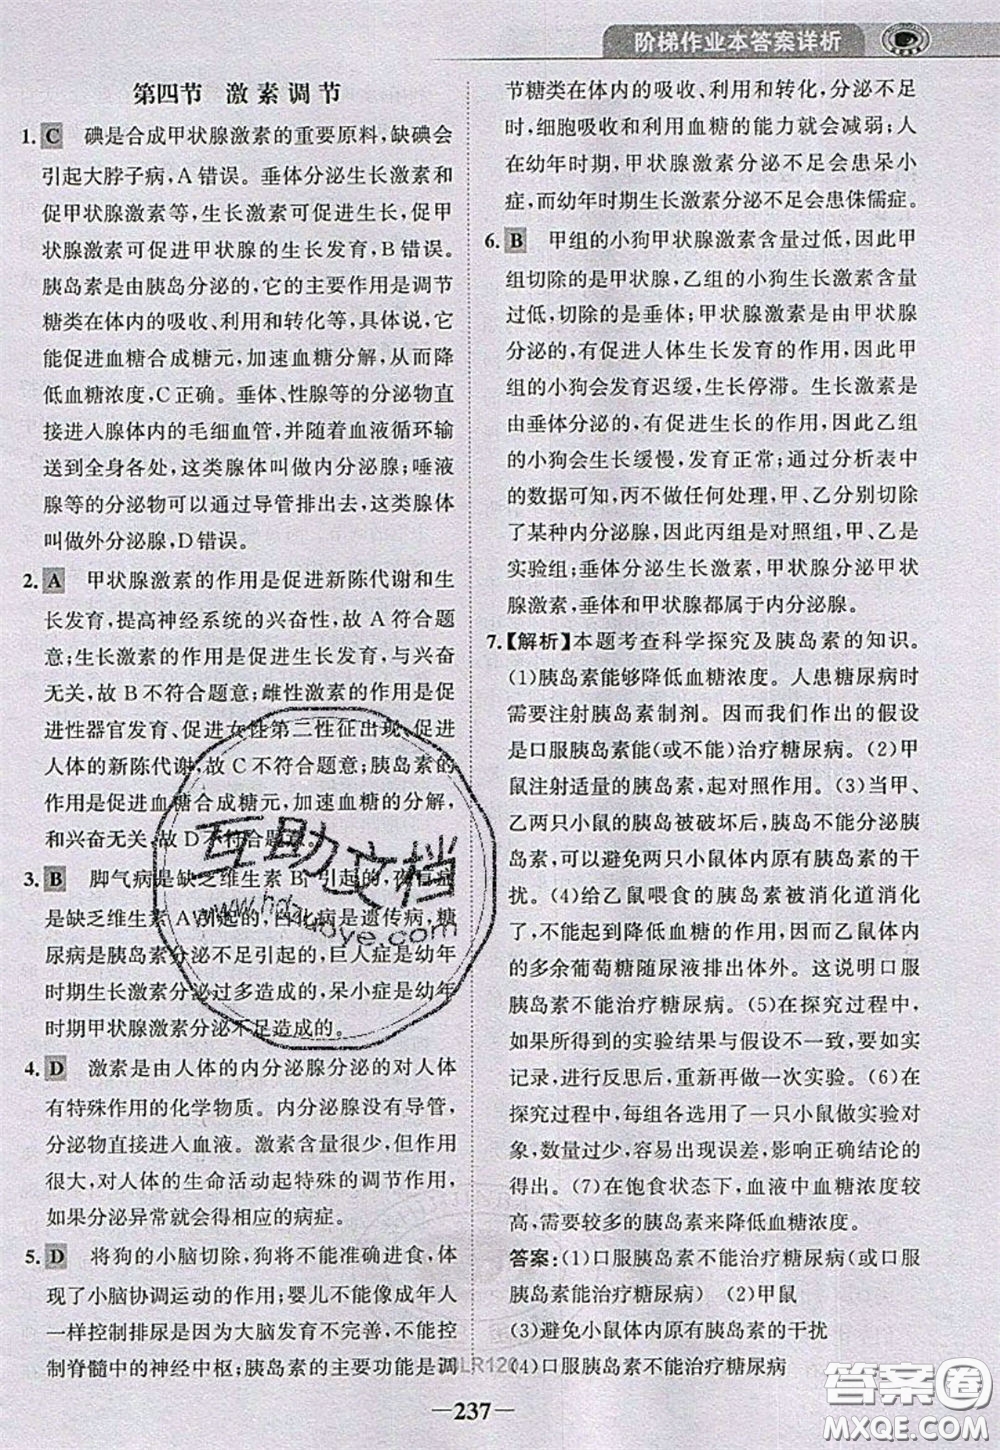 阶梯作业本答案详析
第四节 激素调节
1. C 碘是合成甲状腺激素的重要原料,缺碘会
引起大脖子病,A错误。垂体分泌生长激素和
促甲状腺激素等,生长激素可促进生长,促甲
状腺激素可促进甲状腺的生长发育,B错误。
胰岛素是由胰岛分泌的,它的主要作用是调节
糖类在体内的吸收、利用和转化等,具体说,它
能促进血糖合成糖元,加速血糖分解,从而降
低血糖浓度,C正确。垂体、性腺等的分泌物直
接进入腺体内的毛细血管,并随着血液循环输
送到全身各处,这类腺体叫做内分泌腺;唾液
腺等的分泌物可以通过导管排出去,这类腺体
叫做外分泌腺,D错误。
2. A 甲状腺激素的作用是促进新陈代谢和生
长发育,提高神经系统的兴奋性;故A符合题
意;生长激素的作用是促进生长发育,与兴奋
无关,故B不符合题意;雌性激素的作用是促
进性器官发育、促进女性第二性征出现、促进
人体的新陈代谢,故C不符合题意;胰岛素的
作用是促进血糖合成糖元,加速血糖的分解,
和兴奋无关,故D不符合题意。
3. B 脚气病是缺乏维生素B1引起的,夜盲症
是缺乏维生素A引起的,白化病是遗传病,糖
尿病是胰岛素分泌不足引起的;巨人症是幼年
时期生长激素分泌过多造成的,呆小症是幼年
时期甲状腺激素分泌不足造成的。
4. D 激素是由人体的内分泌腺分泌的对人体
有特殊作用的化学物质。内分泌腺没有导管,
分泌物直接进入血液。激素含量很少,但作用
很大,对人体的生命活动起特殊的调节作用,
如果分泌异常就会得相应的病症。
5. D 将狗的小脑切除,狗将不能准确进食,体
现了小脑协调运动的作用;婴儿不能像成年人
一样控制排尿是因为大脑发育不完善,不能控
制脊髓中的神经中枢;胰岛素的主要功能是调
节糖类在体内的吸收、利用和转化,分泌不足
时,细胞吸收和利用血糖的能力就会减弱;人
在幼年时期,甲状腺激素分泌不足会患呆小
症,而幼年时期生长激素分泌不足会患侏儒症。
6. B 甲组的小狗甲状腺激素含量过低,因此甲
组切除的是甲状腺,乙组的小狗生长激素含量
过低,切除的是垂体;甲状腺激素是由甲状腺
分泌的,有促进人体生长发育的作用,因此甲
组的小狗会发育迟缓,生长停滞。生长激素是
由垂体分泌的,有促进生长的作用,因此乙组
的小狗会生长缓慢,发育正常;通过分析表中
的数据可知,丙未做任何处理,甲、乙分别切除
了某种内分泌腺,因此丙组是对照组,甲、乙是
实验组;垂体分泌生长激素,甲状腺分泌甲状
腺激素,垂体和甲状腺都属于内分泌腺。
7.【解析】本题考查科学探究及胰岛素的知识。
(1)胰岛素能够降低血糖浓度。人患糖尿病时
需要注射胰岛素制剂。因而我们作出的假设
是口服胰岛素能(或不能)治疗糖尿病。(2)甲
鼠注射适量的胰岛素,起对照作用。(3)当甲、
乙两只小鼠的胰岛被破坏后,胰岛不能分泌胰
岛素,可以避免两只小鼠体内原有胰岛素的干
扰。(4)给乙鼠喂食的胰岛素被消化道消化
了,不能起到降低血糖的作用,因而乙鼠体内
的多余葡萄糖随尿液排出体外。这说明口服
胰岛素不能治疗糖尿病。(5)在探究过程中,
如果得到的实验结果与假设不一致,要对实验
进行反思后,最好再做一次实验。(6)在
探究过程中,每组各选用了一只小鼠做实验对
象,数量过少,容易出现误差,影响正确结论的
得出。(7)在饱食状态下,血液中血糖浓度较
高,需要较多的胰岛素来降低血糖浓度。
答案:(1)口服胰岛素不能治疗糖尿病(或口服
胰岛素能治疗糖尿病) (2)甲鼠
(3)避免小鼠体内原有胰岛素的干扰
(4)口服胰岛素不能治疗糖尿病
237
互助文档
答案圈
MXQE.COM